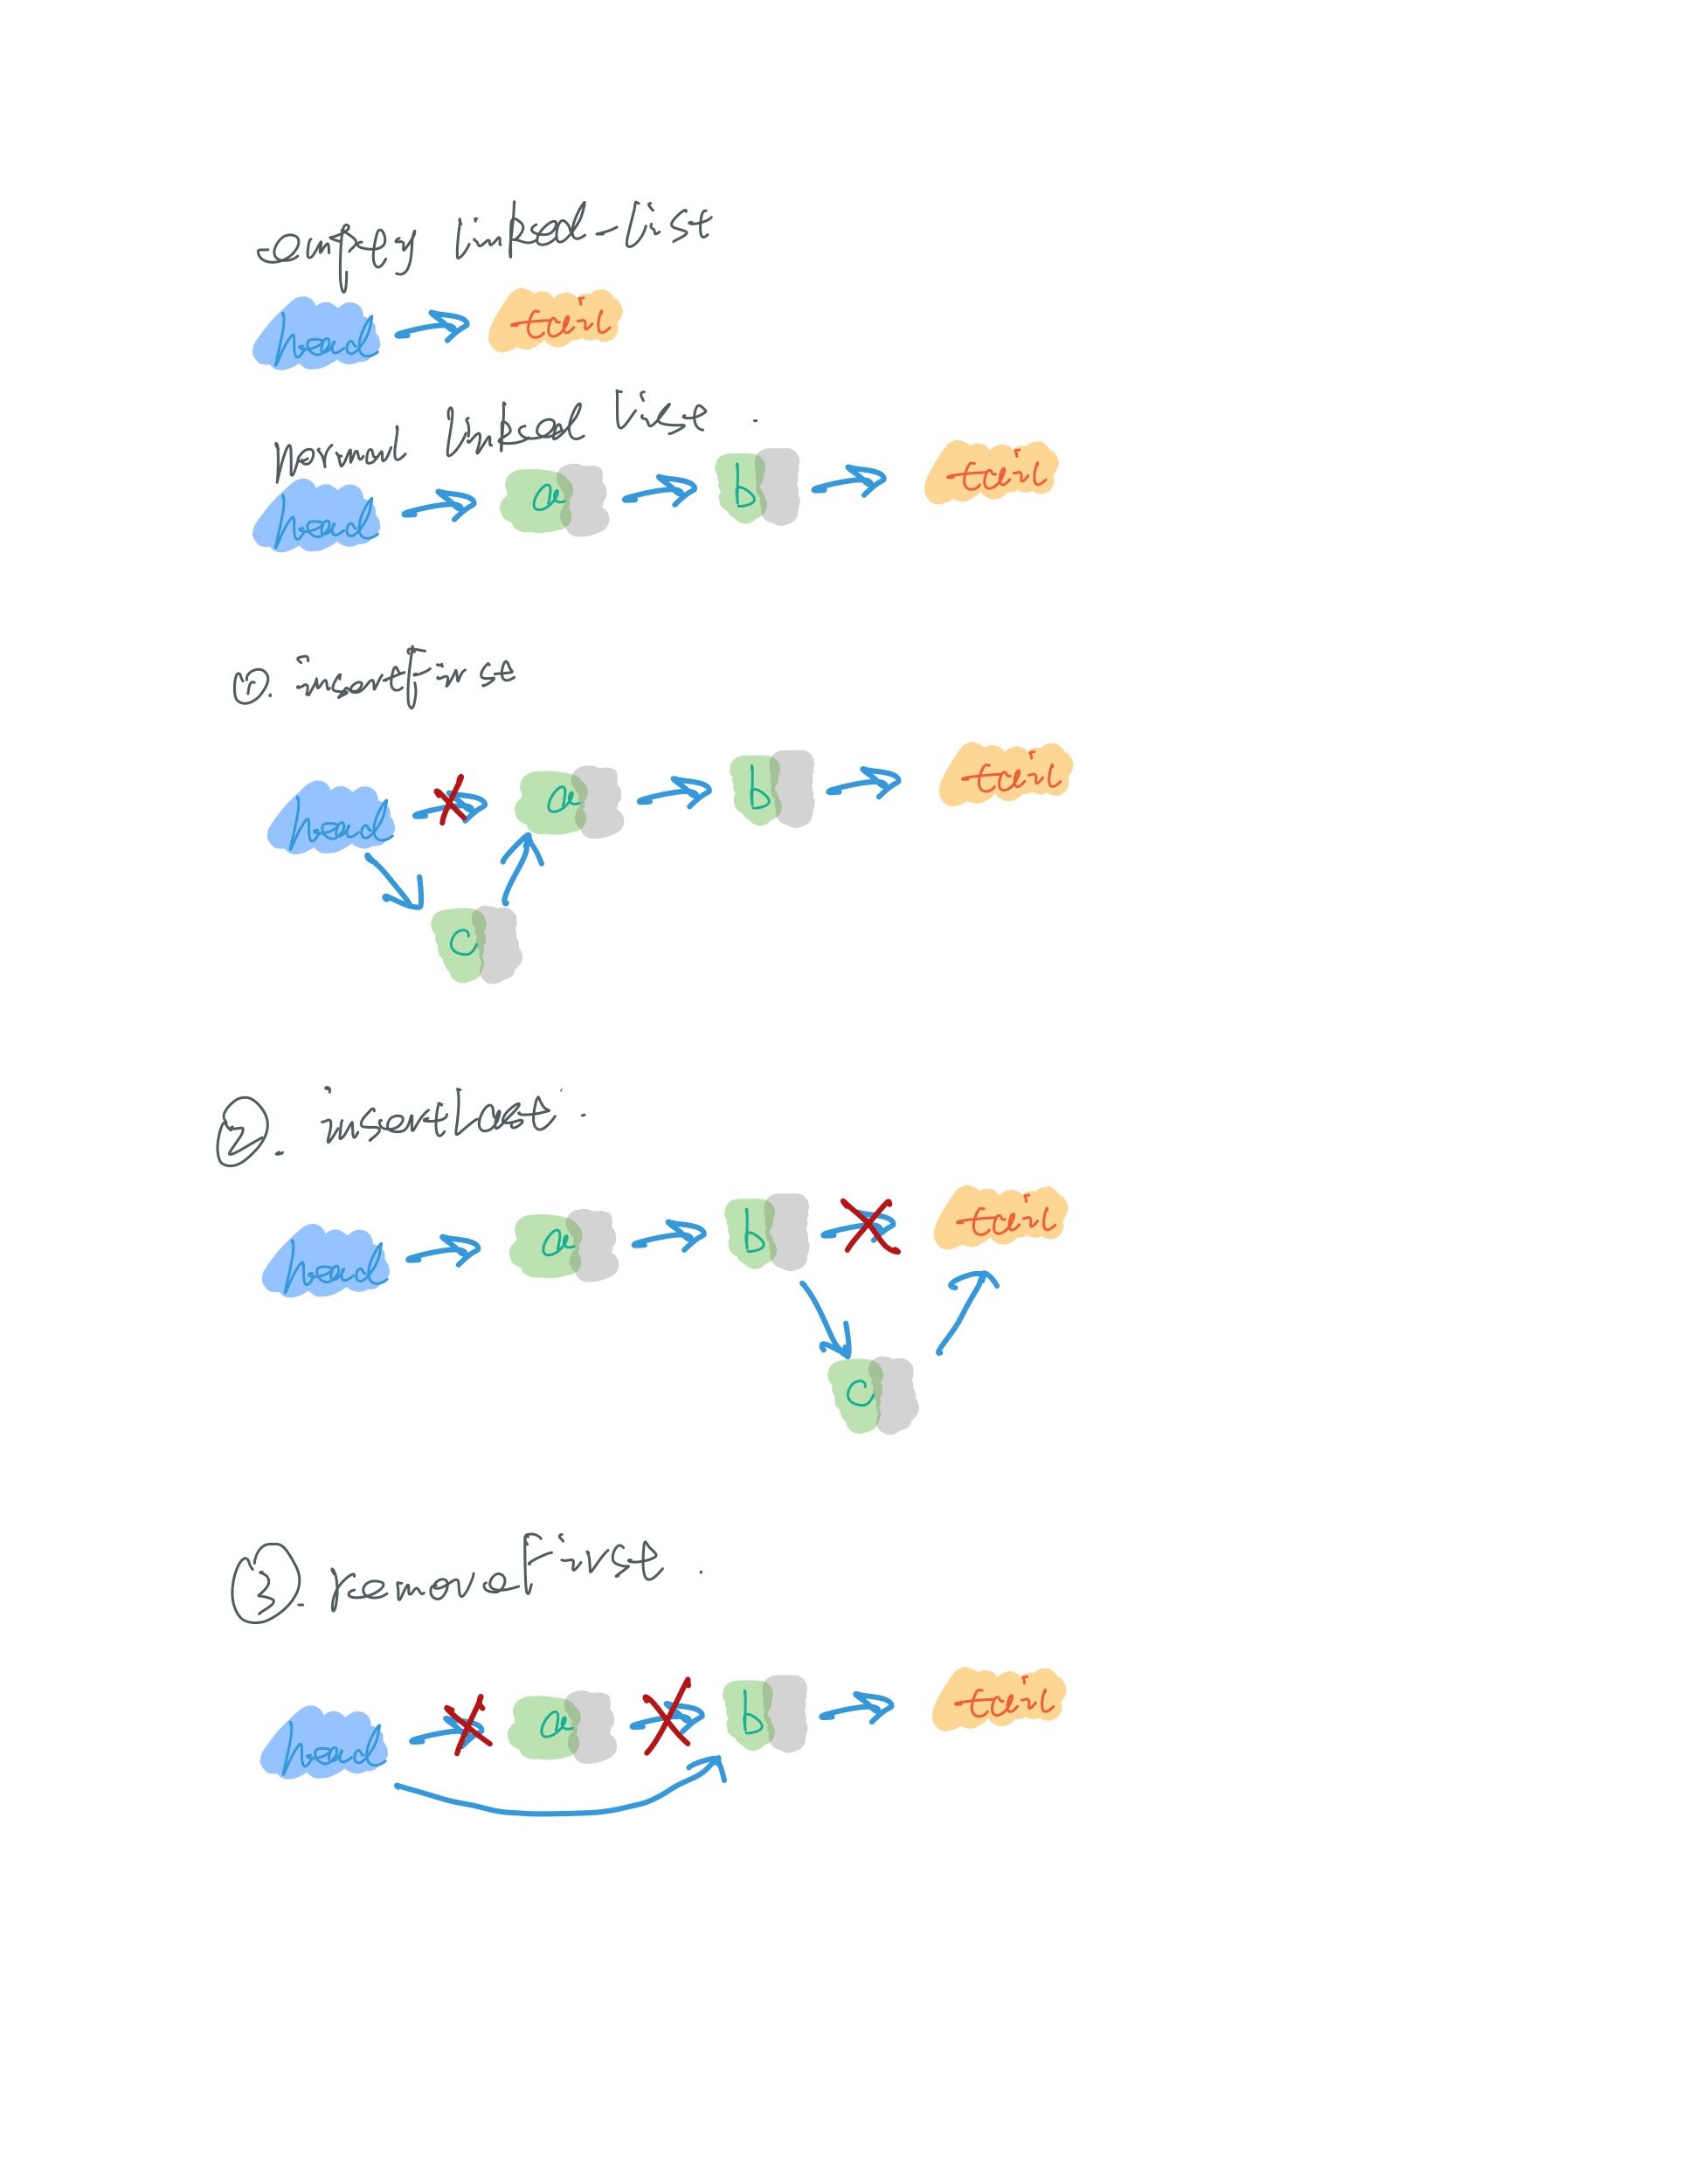 empty linked-list
head tail
Normal linked list.
head a b tail
①. insertfirst
head a b tail
c
②. insertLast.
head a b tail
c
③. removeFirst.
head a b tail